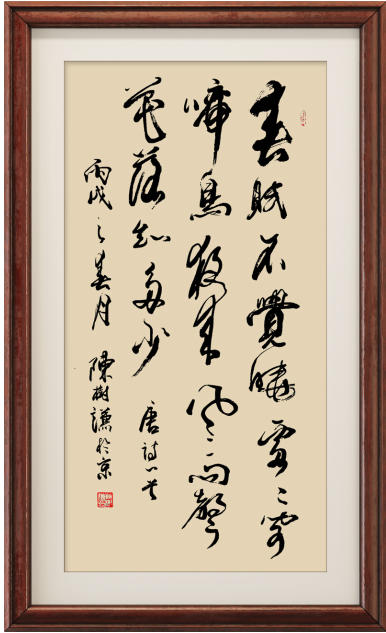 春眠不覺曉處々聞
啼鳥夜來風雨聲
花落知多少 唐詩一首
丙戌之春月 陳樹謙於京